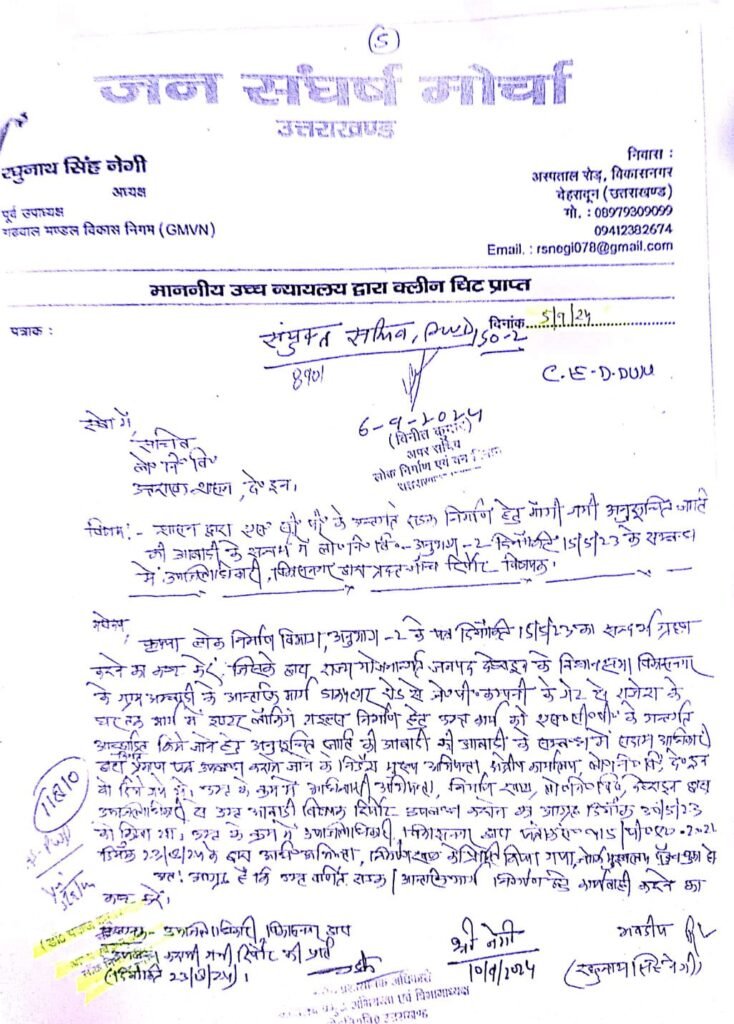 (5)
जन संघर्ष मोर्चा
उत्तराखण्ड
रघुनाथ सिंह नेगी
अध्यक्ष
पूर्व उपाध्यक्ष
गढवाल मण्डल विकास निगम (GMVN)
निवास :
अस्पताल रोड़, विकासनगर
देहरादून (उत्तराखण्ड)
मो. : 08979309099
09412382674
Email. : rsnegi078@gmail.com
माननीय उच्च न्यायलय द्वारा क्लीन चिट प्राप्त
पत्राक :
दिनांक....5/9/24
संयुक्त सचिव, PWD, SO-2
8901
C.E-D.DUN
6-9-2024
(विनीत कुमार)
अपर सचिव
लोक निर्माण एवं
सेवा में,
सचिव
लो० नि० वि०
उत्तराखण्ड शासन, दे०दून।
विषय:- शासन द्वारा एस० सी० पी० के अन्तर्गत सड़क निर्माण हेतु माँगी गयी अनुसूचित जाति
की आबादी के सम्बन्ध में लो० नि० वि०-अनुभाग-2 दिनाँकित 15/5/23 के सम्बन्ध
में उपजिलाधिकारी, विकासनगर द्वारा प्रदत्त जाँच रिपोर्ट विषयक।
महोदय,
कृपया लोक निर्माण विभाग, अनुभाग-2 के पत्र दिनाँकित 15/5/23 का सन्दर्भ ग्रहण
करने का कष्ट करें, जिसके द्वारा राज्य योजनान्तर्गत जनपद देहरादून के विधानसभा विकासनगर
के ग्राम अम्बाड़ी के आन्तरिक मार्ग डाकपत्थर रोड से जे०पी० कम्पनी के गेट से राजेश के
घर तक मार्ग में इण्टर लॉकिंग टाइल्स निर्माण हेतु उक्त कार्य को एस०सी०पी० के अन्तर्गत
किये जाने हेतु अनुसूचित जाति की आबादी की आबादी के सम्बन्ध में सक्षम अधिकारी
द्वारा प्रमाण पत्र उपलब्ध कराये जाने के निर्देश मुख्य अभियन्ता, क्षेत्रीय कार्यालय लो०नि०वि०, दे०दून
को दिये गये थे। उक्त के क्रम में अधिशासी अभियन्ता, निर्माण खण्ड, लो०नि०वि०, देहरादून द्वारा
उपजिलाधिकारी से उक्त आबादी विषयक रिपोर्ट उपलब्ध कराने का आग्रह दिनाँक
को किया गया। उक्त के क्रम में उपजिलाधिकारी, विकासनगर द्वारा
दिनाँक 23/8/24 के द्वारा अधि० अभियन्ता, निर्माण खण्ड को प्रेषित किया गया,
अतः आग्रह है कि उक्त वर्णित सड़क / आन्तरिक मार्ग निर्माण हेतु कार्यवाही करने का
कष्ट करें।
11810
संलग्नक- उपजिलाधिकारी, विकासनगर द्वारा
उपलब्ध करायी गयी रिपोर्ट की प्रति
(दिनाँकित 23/8/24)।
श्री नेगी
10/9/2024
भवदीय
(रघुनाथ सिंह नेगी)
प्रमुख अभियन्ता एवं विभागाध्यक्ष
लो०नि०वि० उत्तराखण्ड